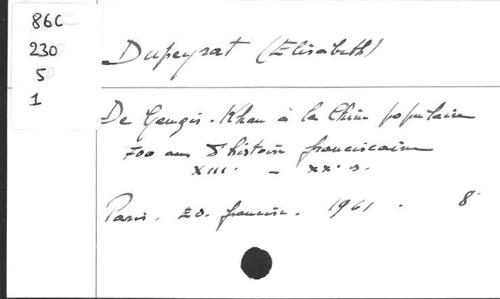 86C
230
5
1
Dupeyrat (Elisabeth)
De Gengis-Khan à la Chine populaire
700 ans d'histoire franciscaine
XIIIe - XXe s.
Paris. Ed. francisc. 1961. 8°